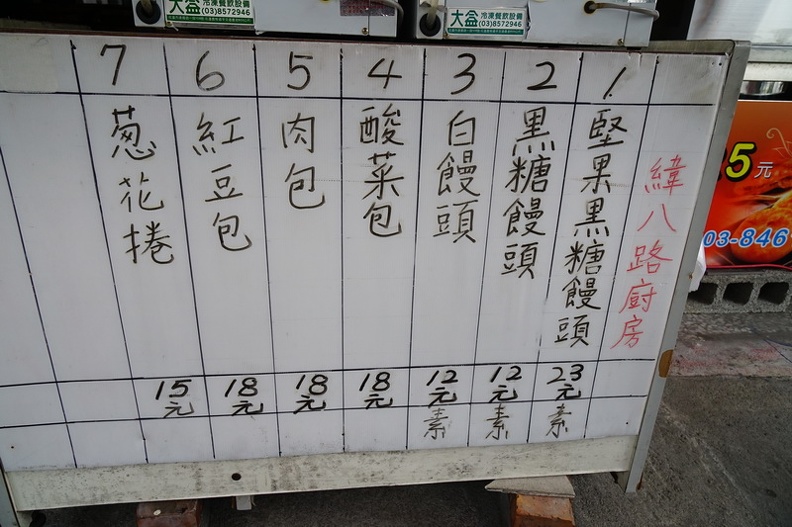 大益 冷凍餐飲設備
(03)8572946
大益 冷凍餐飲設備
(03)8572946
緯八路廚房
1.
堅果黑糖饅頭
23元
素
2
黑糖饅頭
12元
素
3
白饅頭
12元
素
4
酸菜包
18元
5
肉包
18元
6
紅豆包
18元
7
葱花捲
15元
5元
03-846